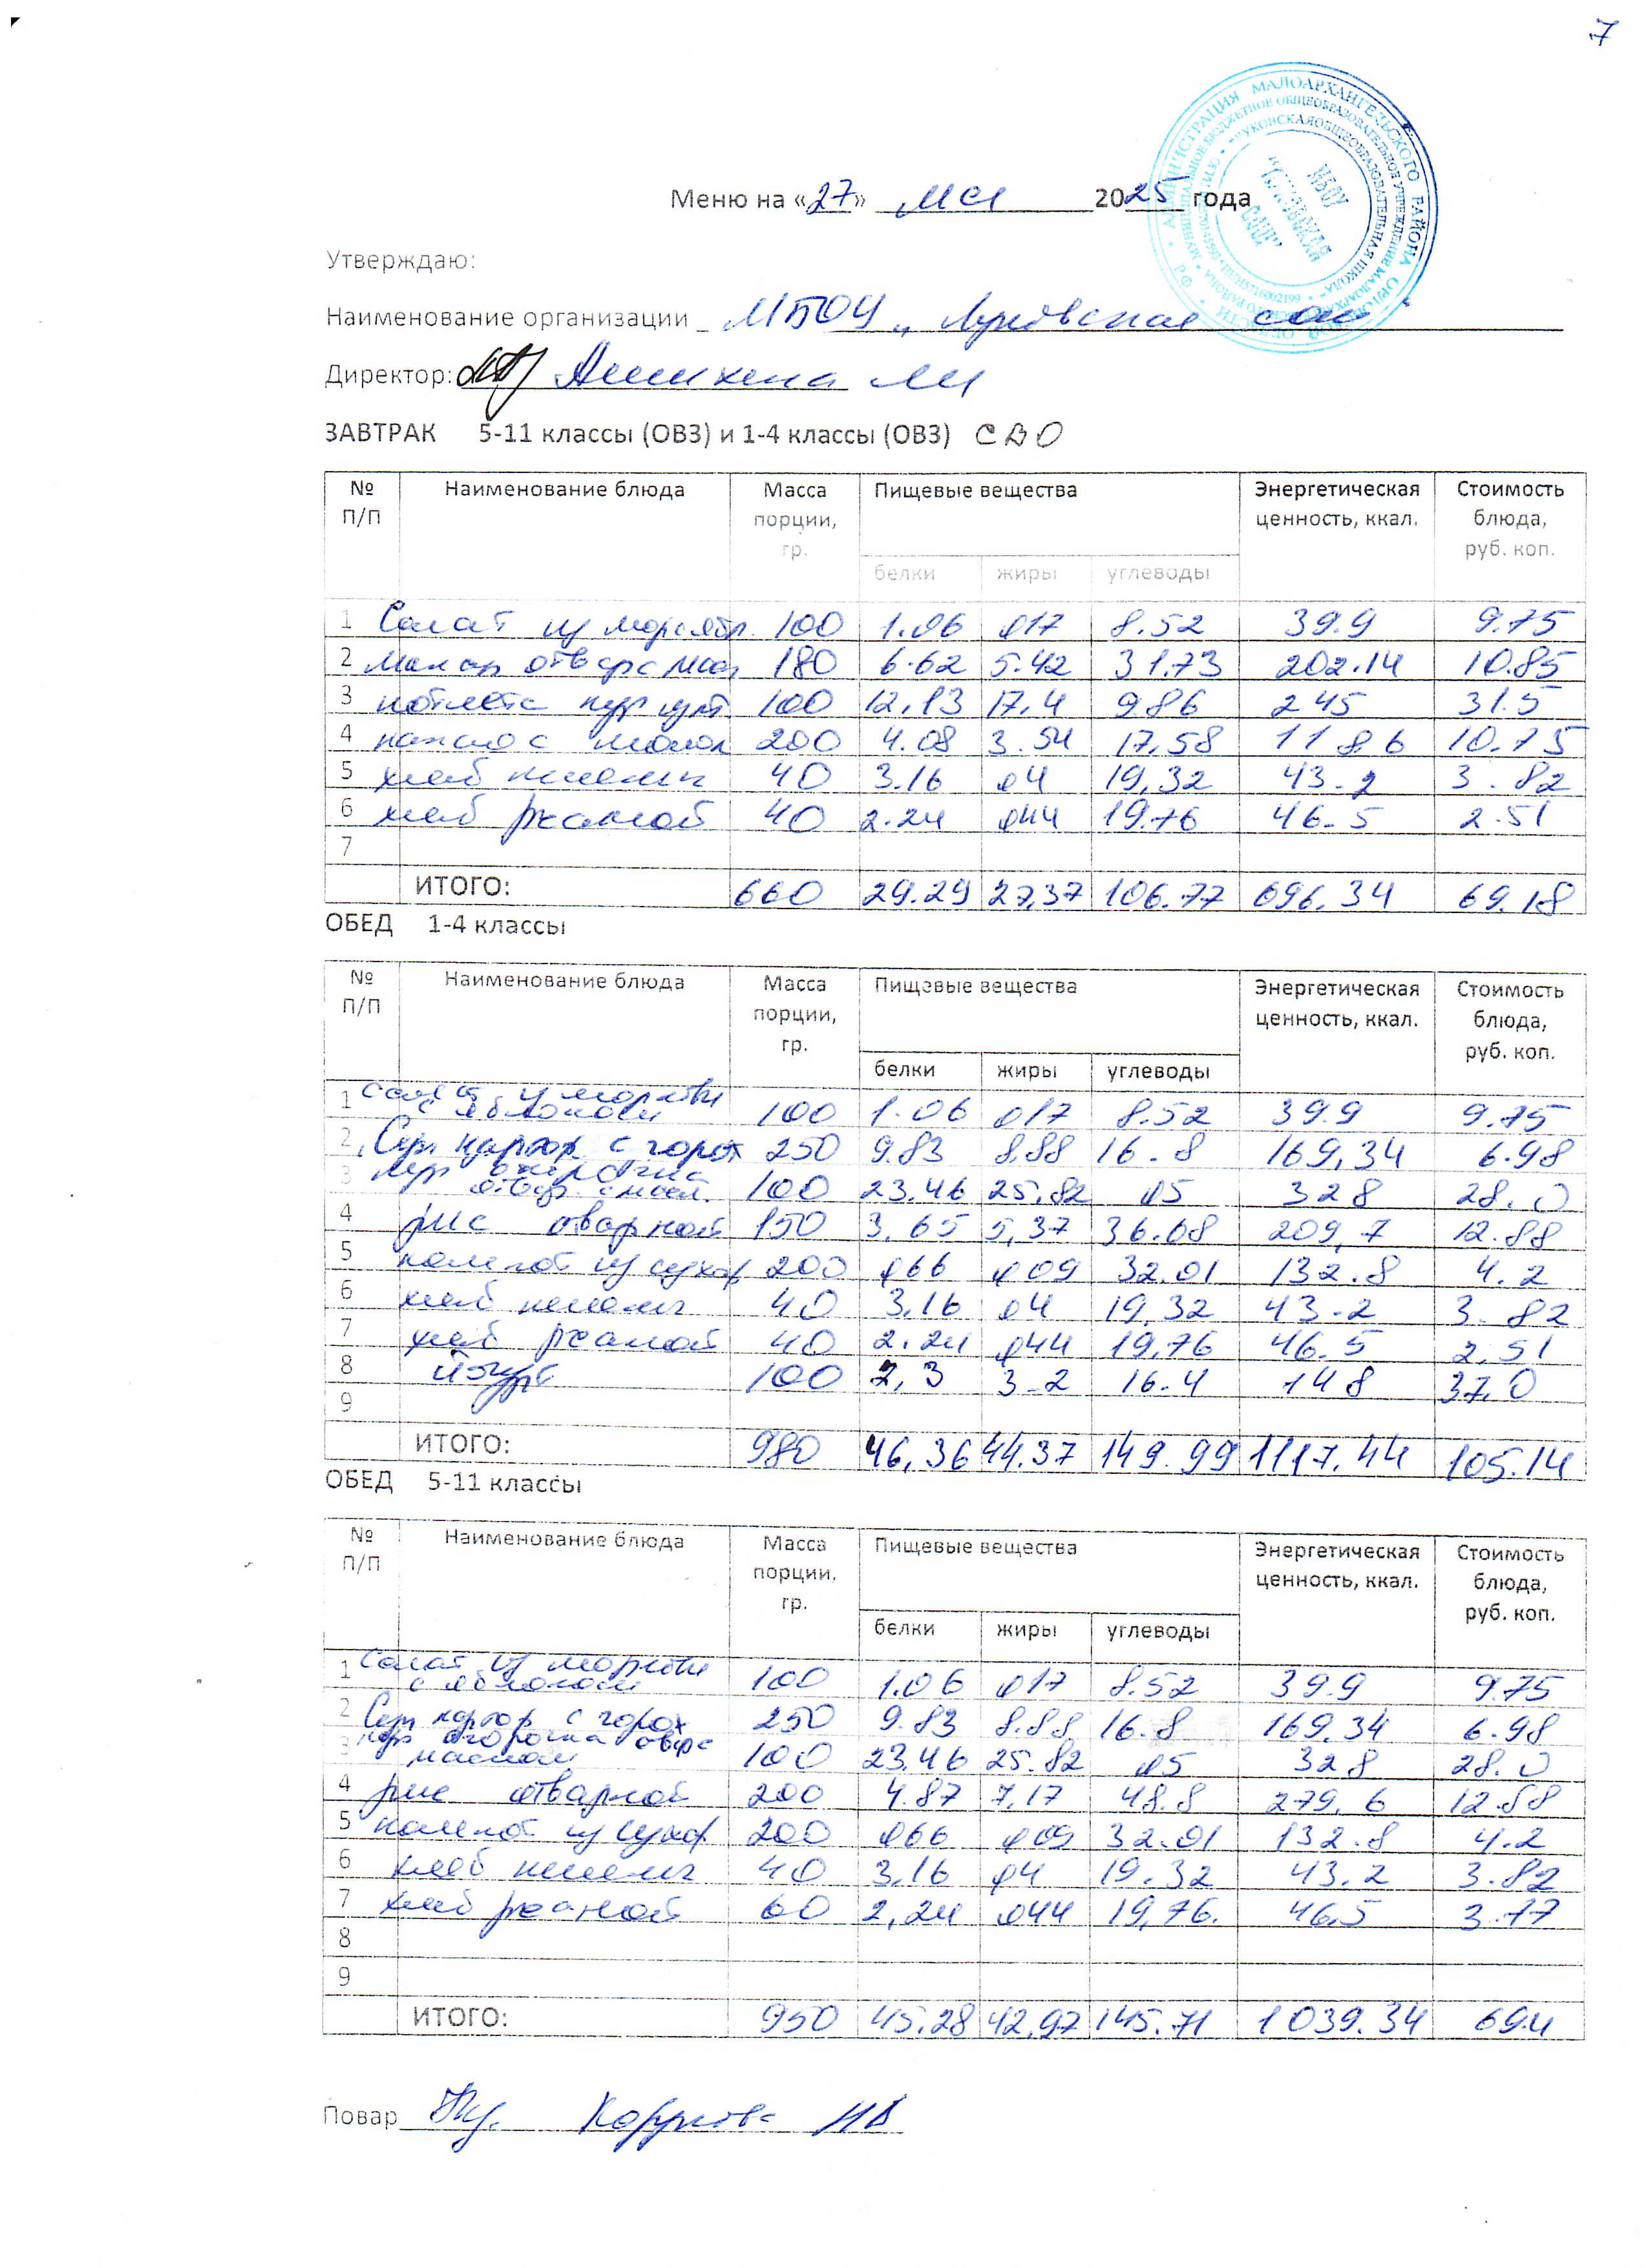 7
Меню на «27» мая 2025 года
Утверждаю:
Наименование организации МБОУ „Луковская сош"
Директор: Анихина МИ
ЗАВТРАК 5-11 классы (ОВЗ) и 1-4 классы (ОВЗ) СВО
№ П/П Наименование блюда Масса порции, гр. Пищевые вещества Энергетическая ценность, ккал. Стоимость блюда, руб. коп.
белки жиры углеводы
1 Салат из морк ябл. 100 1.06 017 8.52 39.9 9.75
2 макар отвар с мас 180 6.62 5.42 31.73 202.14 10.85
3 котлета кур 100 12,13 17,4 9.86 245 31.5
4 какао с молок 200 4.08 3.54 17,58 118.6 10.75
5 хлеб пшенич 40 3.16 04 19,32 43.2 3.82
6 хлеб ржаной 40 2.24 044 19.76 46.5 2.51
7
ИТОГО: 660 29.29 27,37 106.77 696.34 69.18
ОБЕД 1-4 классы
№ П/П Наименование блюда Масса порции, гр. Пищевые вещества Энергетическая ценность, ккал. Стоимость блюда, руб. коп.
белки жиры углеводы
1 салат из моркови с яблоком 100 1.06 017 8.52 39.9 9.75
2 Суп картоф с горох 250 9.83 8,88 16.8 169,34 6.98
3 кур окорочка отвар. с масл. 100 23.46 25,82 05 328 28.0
4 рис отварной 150 3,65 5,37 36.08 209,7 12.88
5 компот из сухоф 200 066 009 32.01 132.8 4.2
6 хлеб пшенич 40 3,16 04 19,32 43.2 3.82
7 хлеб ржаной 40 2.24 044 19,76 46.5 2,51
8 йогурт 100 2,3 3.2 16.4 148 37,0
9
ИТОГО: 980 46,36 44.37 149.99 1117.44 105.14
ОБЕД 5-11 классы
№ П/П Наименование блюда Масса порции, гр. Пищевые вещества Энергетическая ценность, ккал. Стоимость блюда, руб. коп.
белки жиры углеводы
1 Салат из моркови с яблоком 100 1.06 017 8.52 39.9 9.75
2 Суп картоф с горох 250 9.83 8.88 16.8 169,34 6.98
3 кур окорочка отв с маслом 100 23.46 25.82 05 328 28.0
4 рис отварной 200 4.87 7,17 48.8 279,6 12.88
5 компот из сухоф. 200 066 009 32.01 132.8 4.2
6 хлеб пшенич 40 3,16 04 19.32 43.2 3.82
7 хлеб ржаной 60 2,24 044 19,76. 46,5 3.77
8
9
ИТОГО: 950 45.28 42,97 145.71 1039.34 69.4
Повар